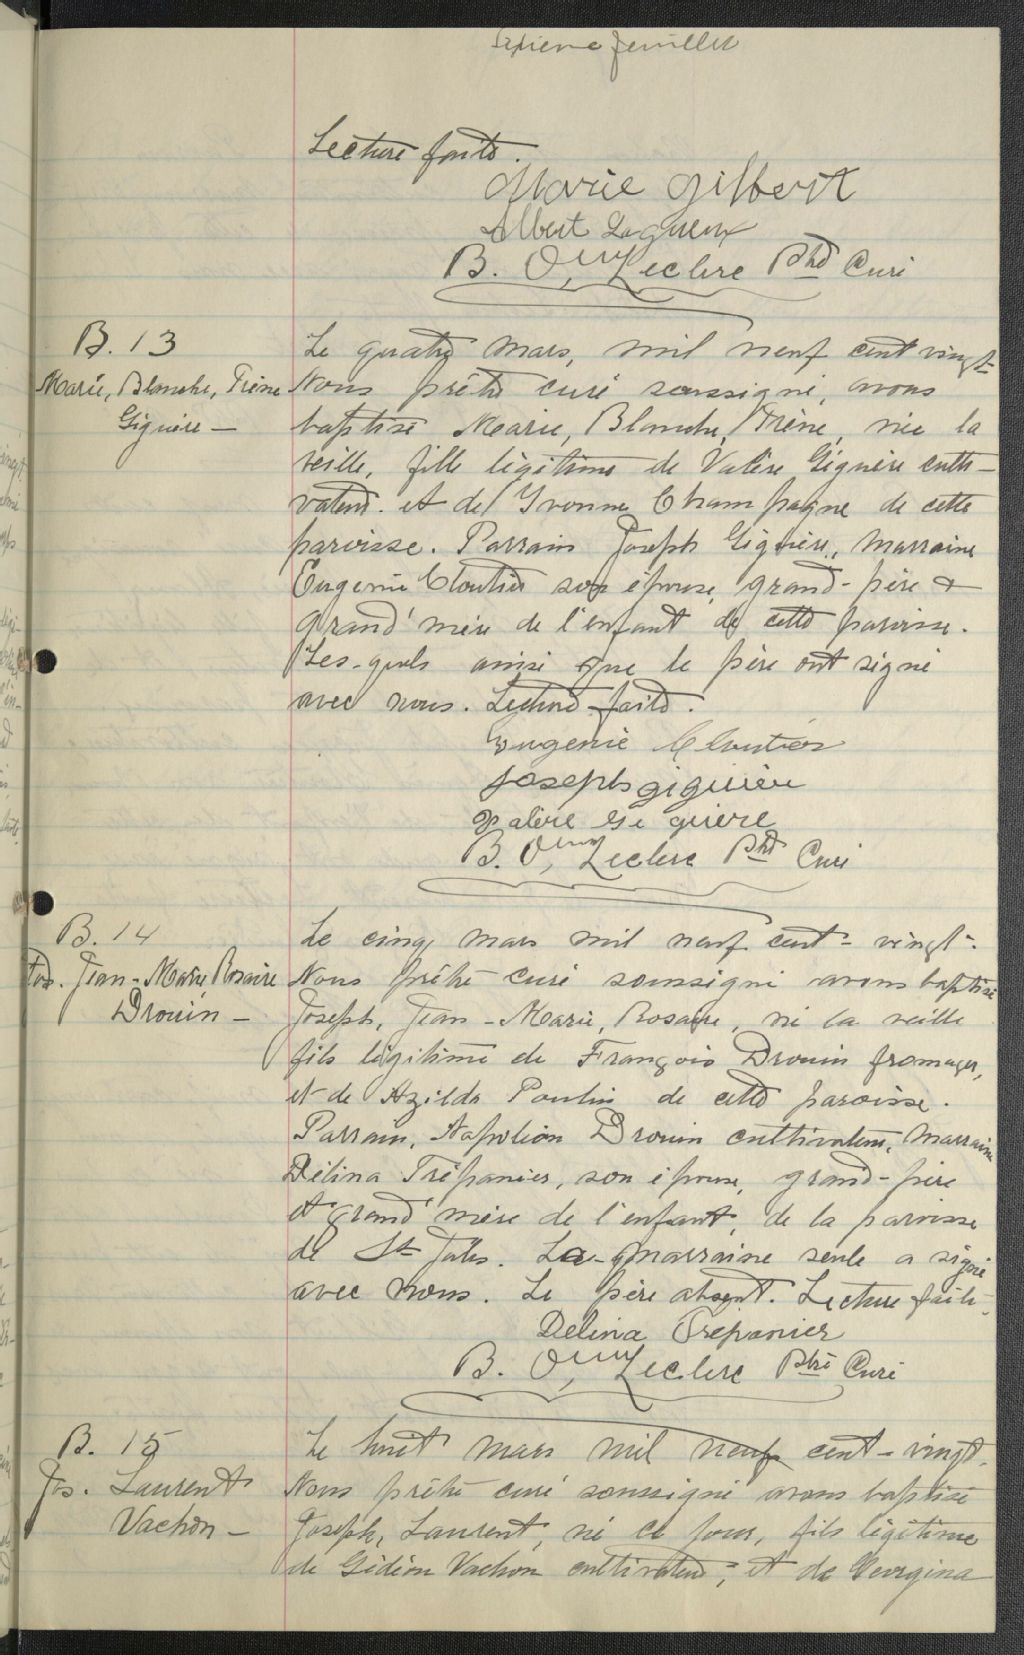 Septième feuillet
Lecture faite.
Marie Gilbert
Albert Lagueux
B. Omer Leclerc Ptre Curé
B. 13
Marie, Blanche, Irène
Giguère —
Le quatre mars, mil neuf cent vingt-
Nous prêtre curé soussigné, avons
baptisé Marie, Blanche, Irène, née la
veille, fille légitime de Valère Giguère culti-
vateur et de Yvonne Champagne de cette
paroisse. Parrain Joseph Giguère, marraine
Eugenie Cloutier son épouse, grand-père &
grand'mère de l'enfant de cette paroisse.
Les-quels ainsi que le père ont signé
avec nous. Lecture faite.
Eugenie Cloutier
Joseph giguère
Valère Giguère
B. Omer Leclerc Ptre Curé
B. 14
Jos. Jean-Marie Rosaire
Drouin —
Le cinq mars mil neuf cent-vingt-
Nous prêtre curé soussigné avons baptisé
Joseph, Jean-Marie, Rosaire, né la veille
fils légitime de François Drouin fromager,
et de Azilda Poulin de cette paroisse.
Parrain, Napoléon Drouin cultivateur, Marraine
Délina Trépanier, son épouse, grand-père
et grand'mère de l'enfant, de la paroisse
de St Jules. La marraine seule a signé
avec nous. Le père absent. Lecture faite.
Delina Trepanier
B. Omer Leclerc Ptre Curé
B. 15
Jos. Laurent
Vachon —
Le huit mars mil neuf cent-vingt.
Nous prêtre curé soussigné avons baptisé
Joseph, Laurent, né ce jour, fils légitime
de Gédéon Vachon cultivateur, et de Georgina